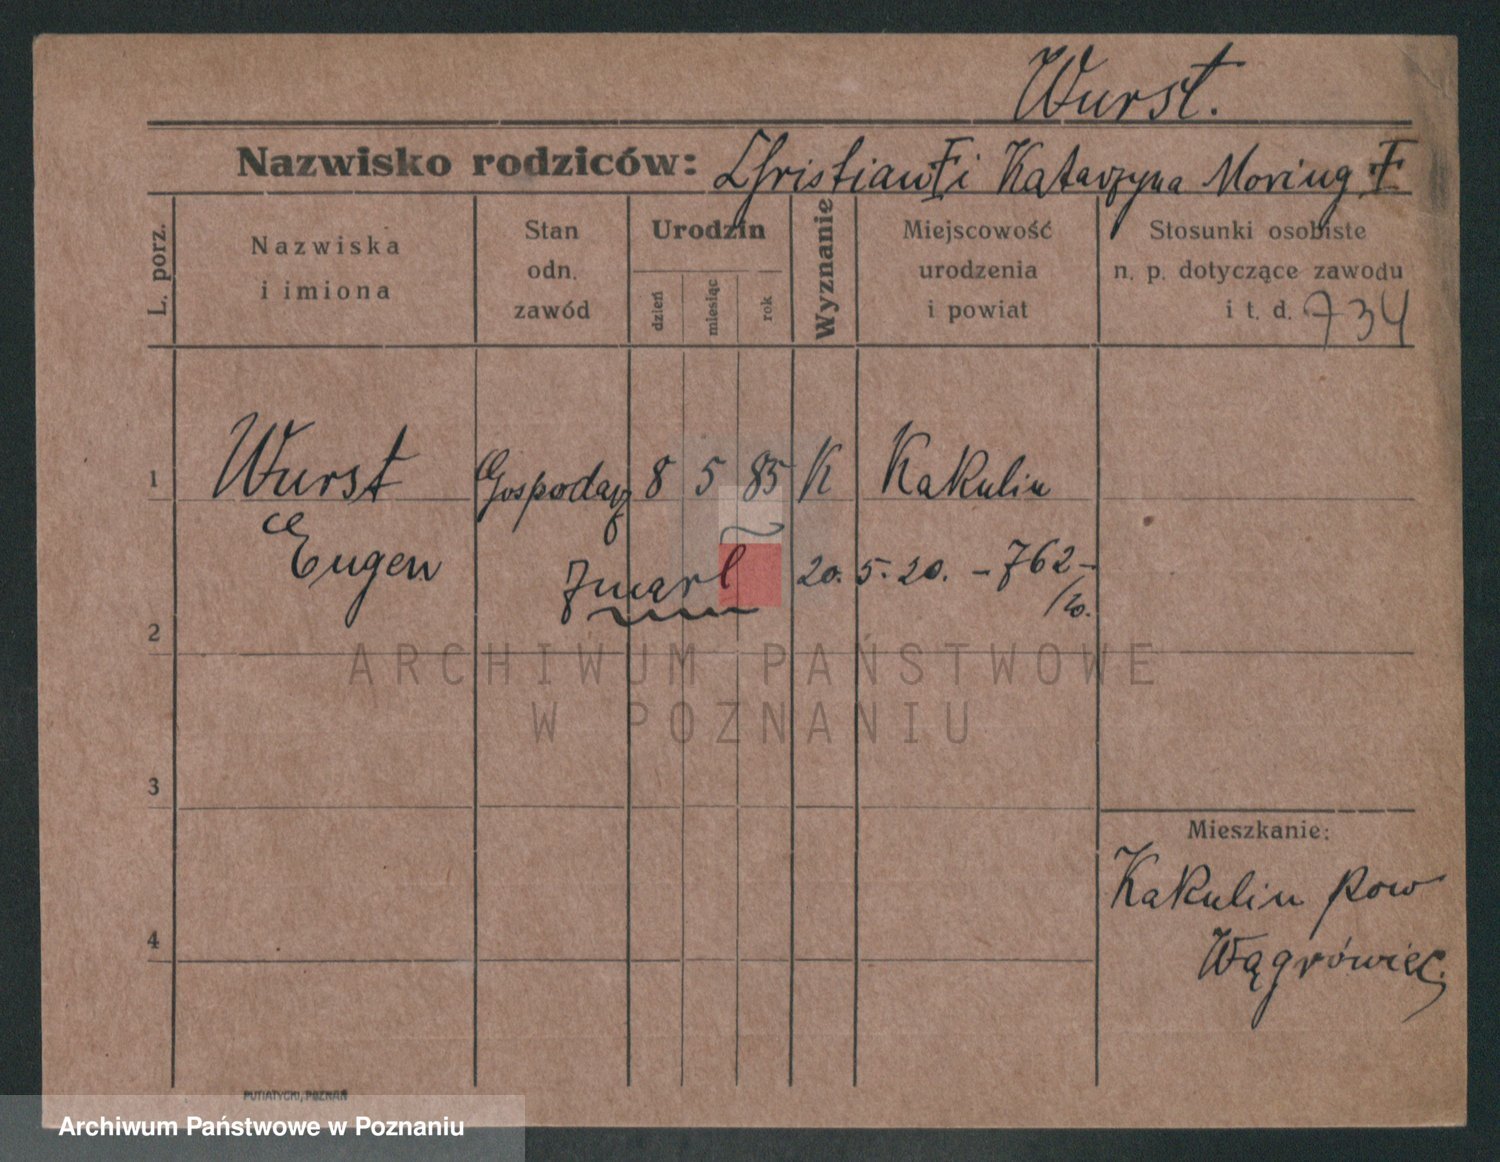 Wurst.
Nazwisko rodziców: Christian † i Katarzyna Moring †
L. porz.
Nazwiska
i imiona
Stan
odn.
zawód
Urodzin
dzień
miesiąc
rok
Wyznanie
Miejscowość
urodzenia
i powiat
Stosunki osobiste
n. p. dotyczące zawodu
i t. d. 734
1 Wurst Gospodarz 8 5 85 K Kakulin
Eugen
Zmarł 20. 5. 20. - 762 -
/20.
2
ARCHIWUM PAŃSTWOWE
W POZNANIU
3
Mieszkanie:
Kakulin pow
Wągrówiec.
4
PUTIATYCKI, POZNAŃ
Archiwum Państwowe w Poznaniu